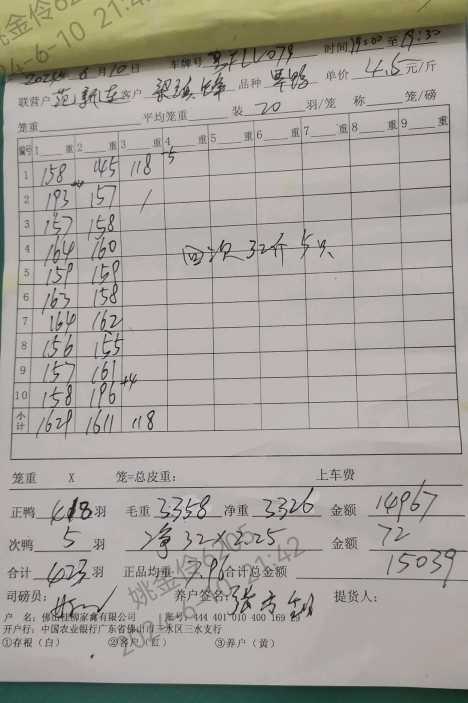 姚金伶6205
24-6-10 21:42
2024年6月10日 车牌号 时间19:00至19:30
联营户 客户 品种 单价4.5元/斤
笼重 平均笼重 装20羽/笼 称 笼/磅
编号 1 重 2 重 3 重 4 重 5 重 6 重 7 重 8 重 9 重
1 158 145 118 -5
2 193 157 /
3 157 158
4 164 160
回次32斤5只
5 159 159
6 163 158
7 164 162
8 156 155
9 157 161
10 158 196 +4
小计 1629 1611 118
笼重 X 笼=总皮重: 上车费
正鸭 418 羽 毛重 3358 净重 3326 金额 14967
次鸭 5 羽 净32×2.25 金额 72
合计 423 羽 正品均重 7.96 合计总金额 15039
姚金伶6205
2024-6-10 21:42
司磅员: 养户签名: 提货人:
开户行:中国农业银行广东省佛山市三水区三水支行
①存根(白) ②客户(红) ③养户(黄)